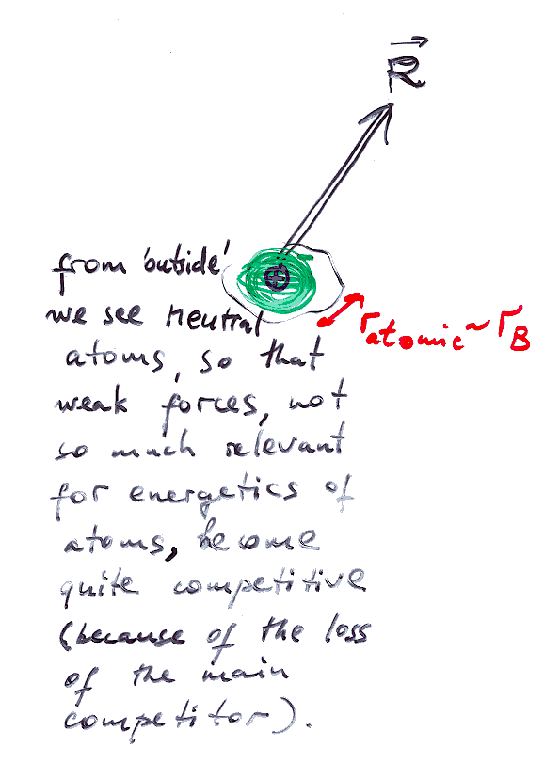 R⃗
from 'outside'
we see neutral
atoms, so that
weak forces, not
so much relevant
for energetics of
atoms, become
quite competitive
(because of the loss
of the main
competitor).
+
r_atomic ~ r_B